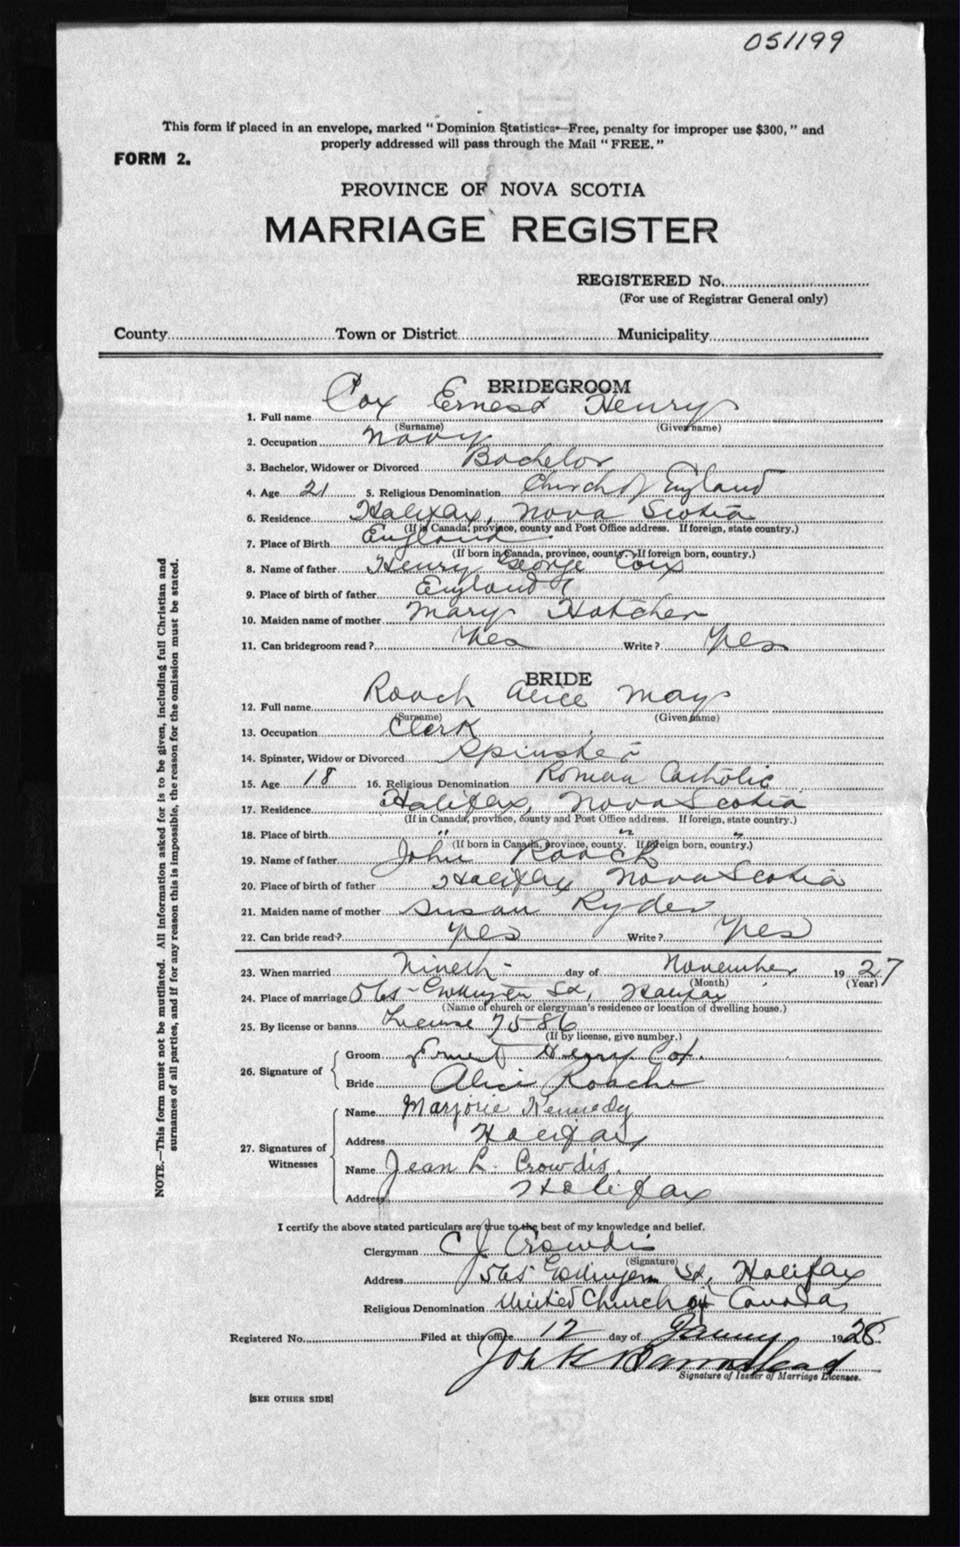 051199
This form if placed in an envelope, marked "Dominion Statistics—Free, penalty for improper use $300," and
properly addressed will pass through the Mail "FREE."
FORM 2.
PROVINCE OF NOVA SCOTIA
MARRIAGE REGISTER
REGISTERED No.
(For use of Registrar General only)
County Town or District Municipality
BRIDEGROOM
1. Full name Cox Ernest Henry
(Surname) (Given name)
2. Occupation Navy
3. Bachelor, Widower or Divorced Bachelor
4. Age 21 5. Religious Denomination Church of England
6. Residence Halifax, Nova Scotia
(If in Canada, province, county and Post Office address. If foreign, state country.)
7. Place of Birth England
(If born in Canada, province, county. If foreign born, country.)
8. Name of father Henry George Cox
9. Place of birth of father England
10. Maiden name of mother Mary Hatcher
11. Can bridegroom read? Yes Write? Yes
BRIDE
12. Full name Roach Alice May
(Surname) (Given name)
13. Occupation Clerk
14. Spinster, Widow or Divorced Spinster
15. Age 18 16. Religious Denomination Roman Catholic
17. Residence Halifax, Nova Scotia
(If in Canada, province, county and Post Office address. If foreign, state country.)
18. Place of birth " " "
(If born in Canada, province, county. If foreign born, country.)
19. Name of father John Roach
20. Place of birth of father Halifax Nova Scotia
21. Maiden name of mother Susan Ryder
22. Can bride read? Yes Write? Yes
23. When married Nineth day of November 1927
(Month) (Year)
24. Place of marriage 565 St, Halifax
(Name of church or clergyman's residence or location of dwelling house.)
25. By license or banns License 7586
(If by license, give number.)
26. Signature of
Groom Ernest Henry Cox.
Bride Alice Roache
27. Signatures of Witnesses
Name Marjorie Kennedy
Address Halifax
Name Jean L. Crowdis.
Address Halifax
I certify the above stated particulars are true to the best of my knowledge and belief.
Clergyman C J Crowdis
(Signature)
Address 565 St, Halifax
Religious Denomination United Church of Canada
Registered No. Filed at this office 12 day of 1928
Signature of Issuer of Marriage Licenses.
[SEE OTHER SIDE]
NOTE.—This form must not be mutilated. All information asked for is to be given, including full Christian and
surnames of all parties, and if for any reason this is impossible, the reason for the omission must be stated.